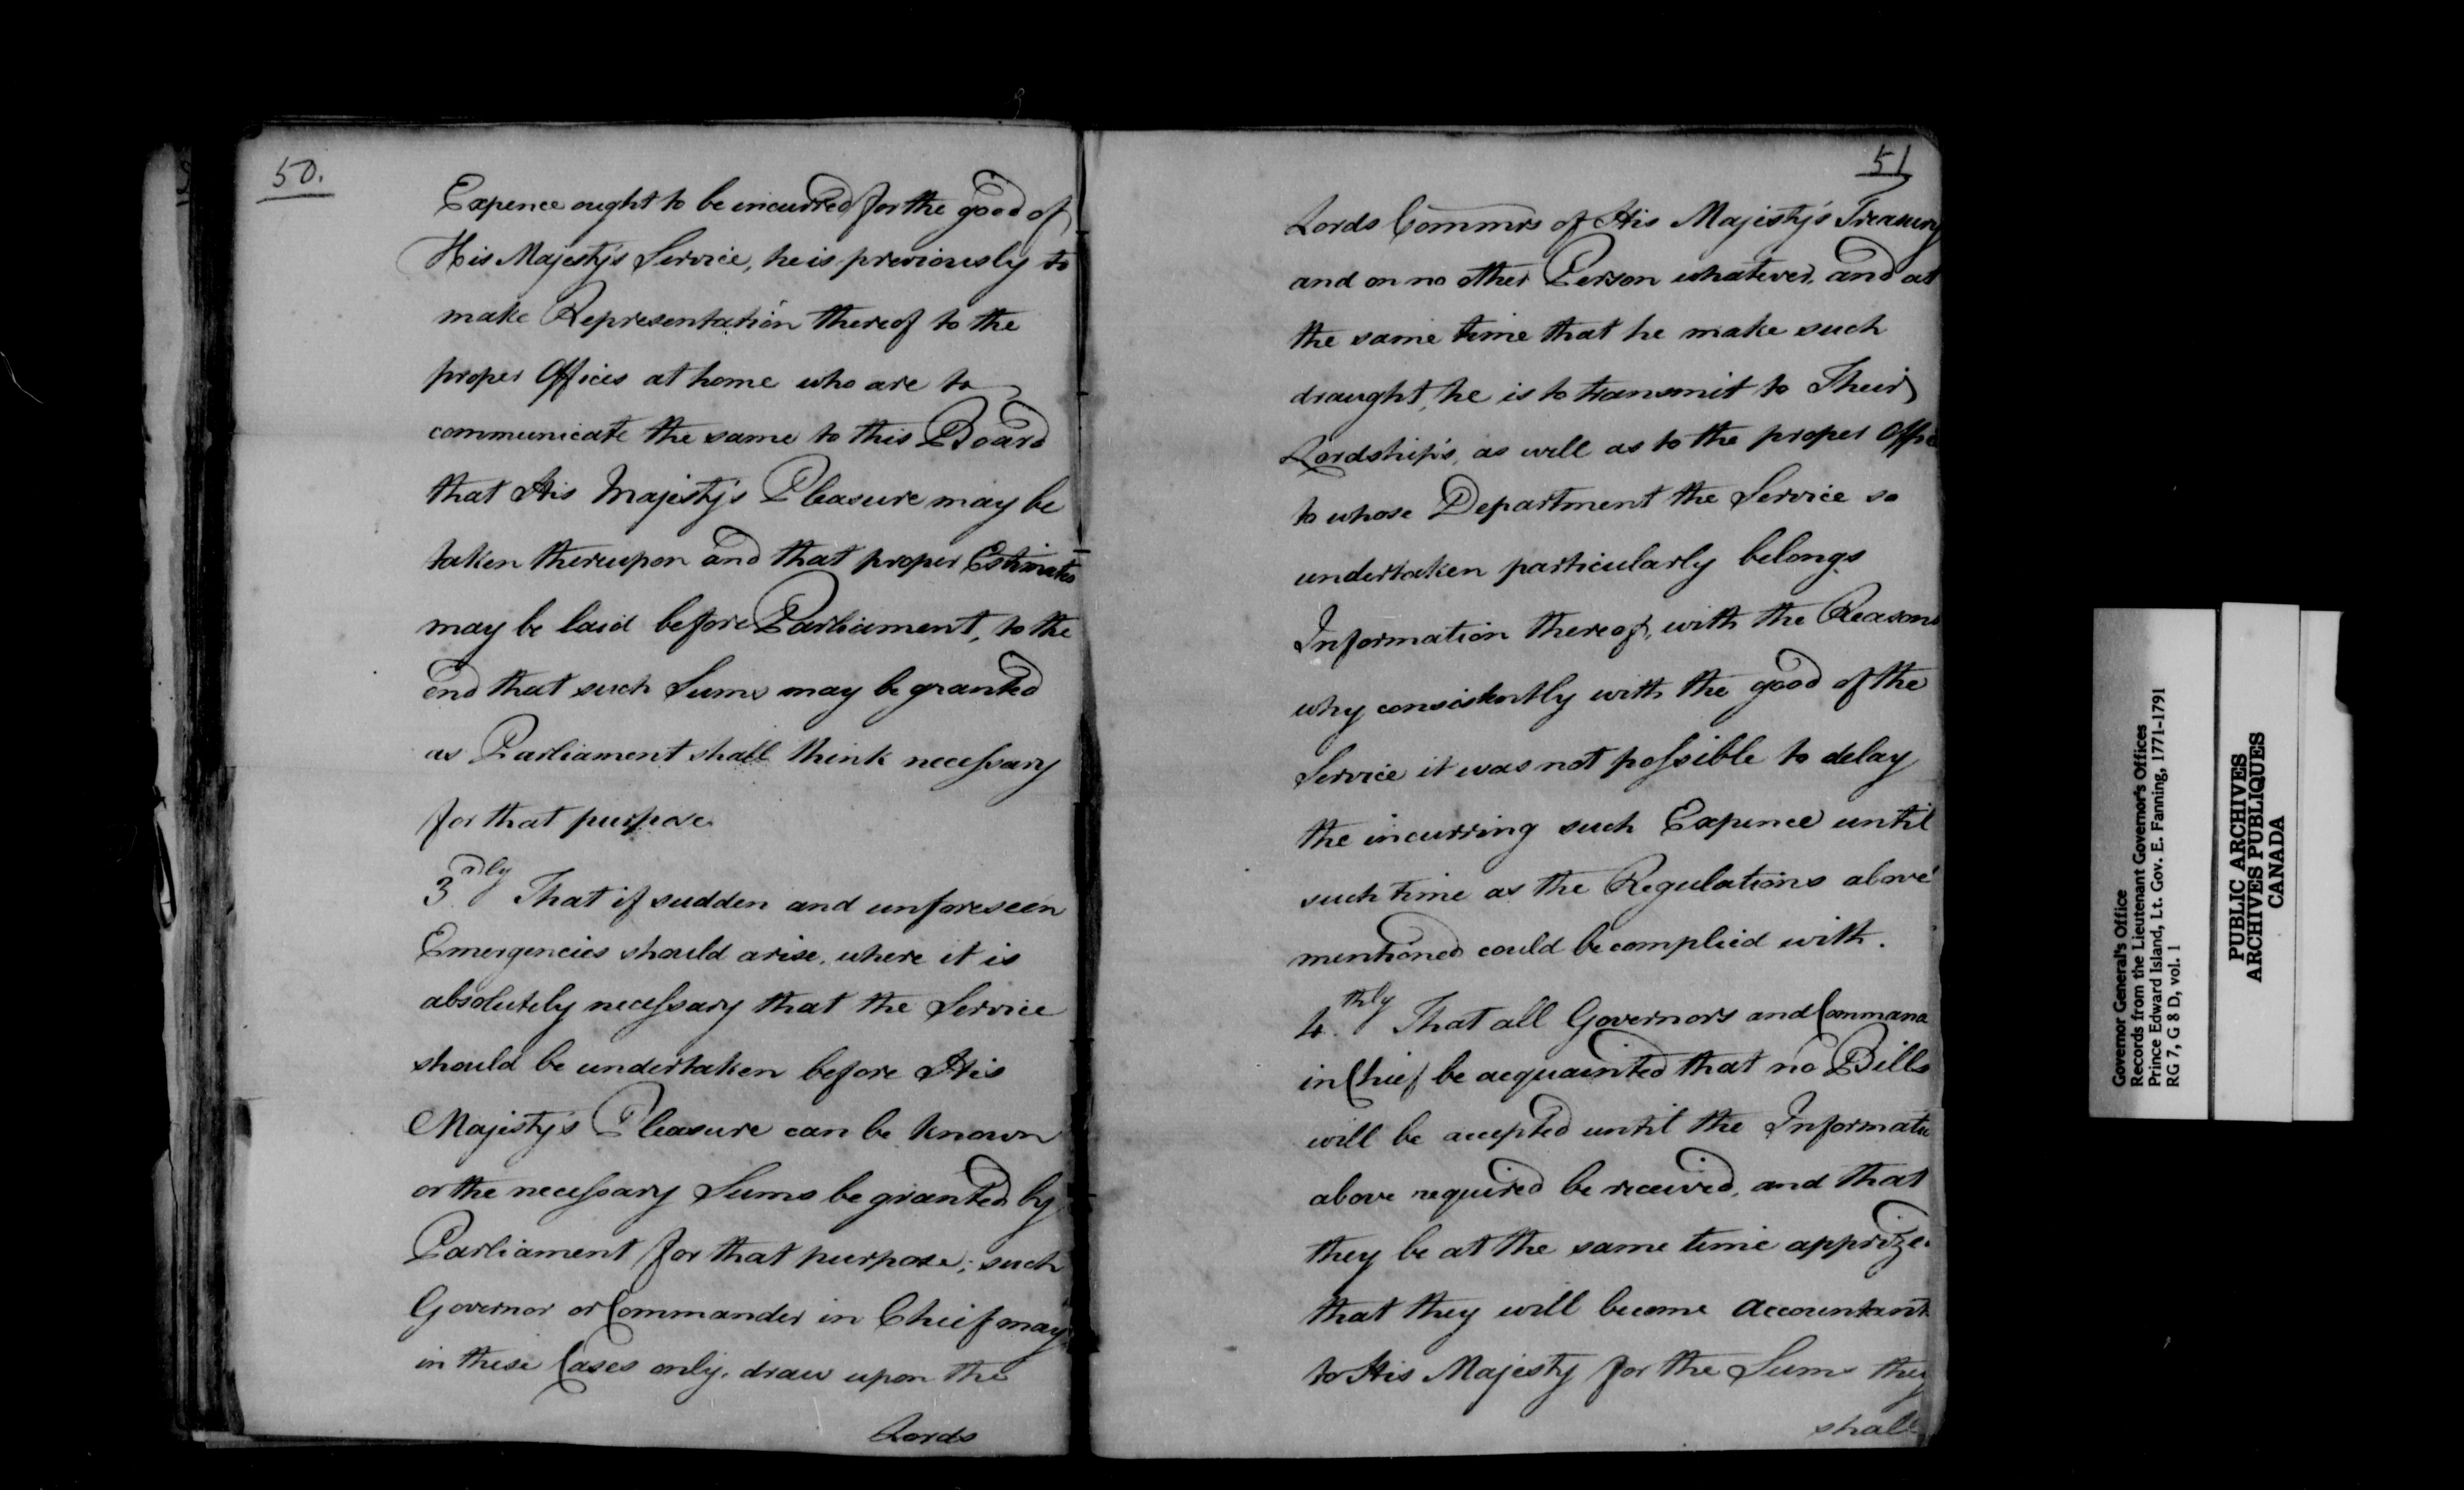 50.
Expence ought to be incurred for the good of
His Majesty's Service, he is previously to
make Representation thereof to the
proper Offices at home who are to
communicate the same to this Board
that His Majesty's Pleasure may be
taken thereupon and that proper Estimates
may be laid before Parliament, to the
end that such Sums may be granted
as Parliament shall think necessary
for that purpose
3rdly That if sudden and unforeseen
Emergencies should arise, where it is
absolutely necessary that the Service
should be undertaken before His
Majesty's Pleasure can be known
or the necessary Sums be granted by
Parliament for that purpose; such
Governor or Commander in Chief may
in these Cases only, draw upon the
Lords
51
Lords Commrs of His Majesty's Treasury
and on no other Person whatever, and at
the same time that he make such
draught, he is to transmit to Their
Lordship's, as well as to the proper Offic
to whose Department the Service so
undertaken particularly belongs
Information thereof, with the Reasons
why consistently with the good of the
Service it was not possible to delay
the incurring such Expence until
such time as the Regulations above
mentioned could be complied with.
4.thly That all Governors and Command
in Chief be acquainted that no Bills
will be accepted until the Informatio
above required be received, and that
they be at the same time apprize
that they will become Accountant
to His Majesty for the Sums they
shall
Governor General's Office
Records from the Lieutenant Governor's Offices
Prince Edward Island, Lt. Gov. E. Fanning, 1771-1791
RG 7, G 8 D, vol. 1
PUBLIC ARCHIVES
ARCHIVES PUBLIQUES
CANADA